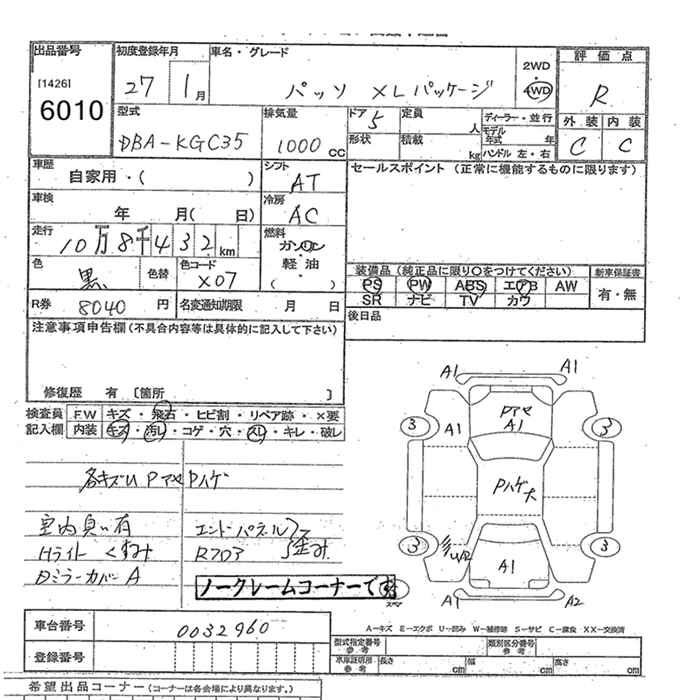 出品番号
[1426]
6010
初度登録年月
27 1月
車名・グレード
パッソ XLパッケージ
2WD
・
4WD
評価点
R
型式
DBA-KGC35
排気量
1000 cc
ドア 5
形状
定員 人
積載 kg
ディーラー・並行
モデル年式 年
ハンドル 左・右
外装 内装
C C
車歴
自家用・( )
シフト
AT
セールスポイント (正常に機能するものに限ります)
車検
年 月( 日)
冷房
AC
走行
10万8千432km
燃料
ガソリン
・
軽油
( )
色
黒 色替
色コード
X07
装備品 (純正品に限り○をつけてください)
新車保証書
PS PW ABS エアB AW
SR ナビ TV カワ
有・無
R券 8040 円
名変通知期限 月 日
後日品
注意事項申告欄(不具合内容等は具体的に記入して下さい)
修復歴 有 [箇所 ]
検査員
記入欄
F.W キズ・飛石・ヒビ割・リペア跡・×要
内装 キズ・汚レ・コゲ・穴・スレ・キレ・破レ
各キズU Pアメ Pハゲ
室内臭い有
Hライト くすみ
ミラーカバーA
エンドパネル
R フロア 歪み
ノークレームコーナーです
A1 A1
A1
Pアメ
A1
3 3
Pハゲ大
3 3
W2
A1
A1 A2
A-キズ E-エクボ U-凹み W-補修跡 S-サビ C-腐食 XX-交換済
車台番号
0032960
登録番号
型式指定番号
参考
類別区分番号
参考
車庫証明用
参考
長さ cm
幅 cm
高さ cm
希望出品コーナー(コーナーは各会場により異なります。)